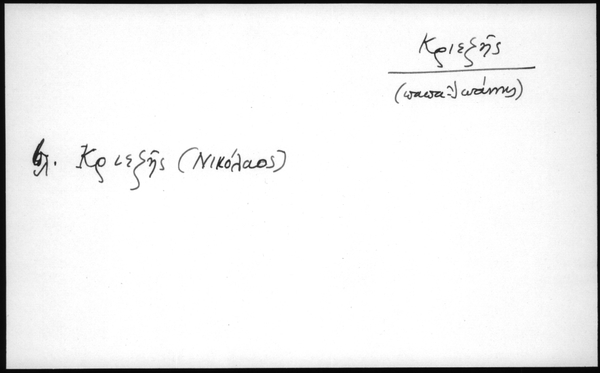 Κριεζῆς
(παπα-Ἰωάννης)
βλ. Κριεζῆς (Νικόλαος)